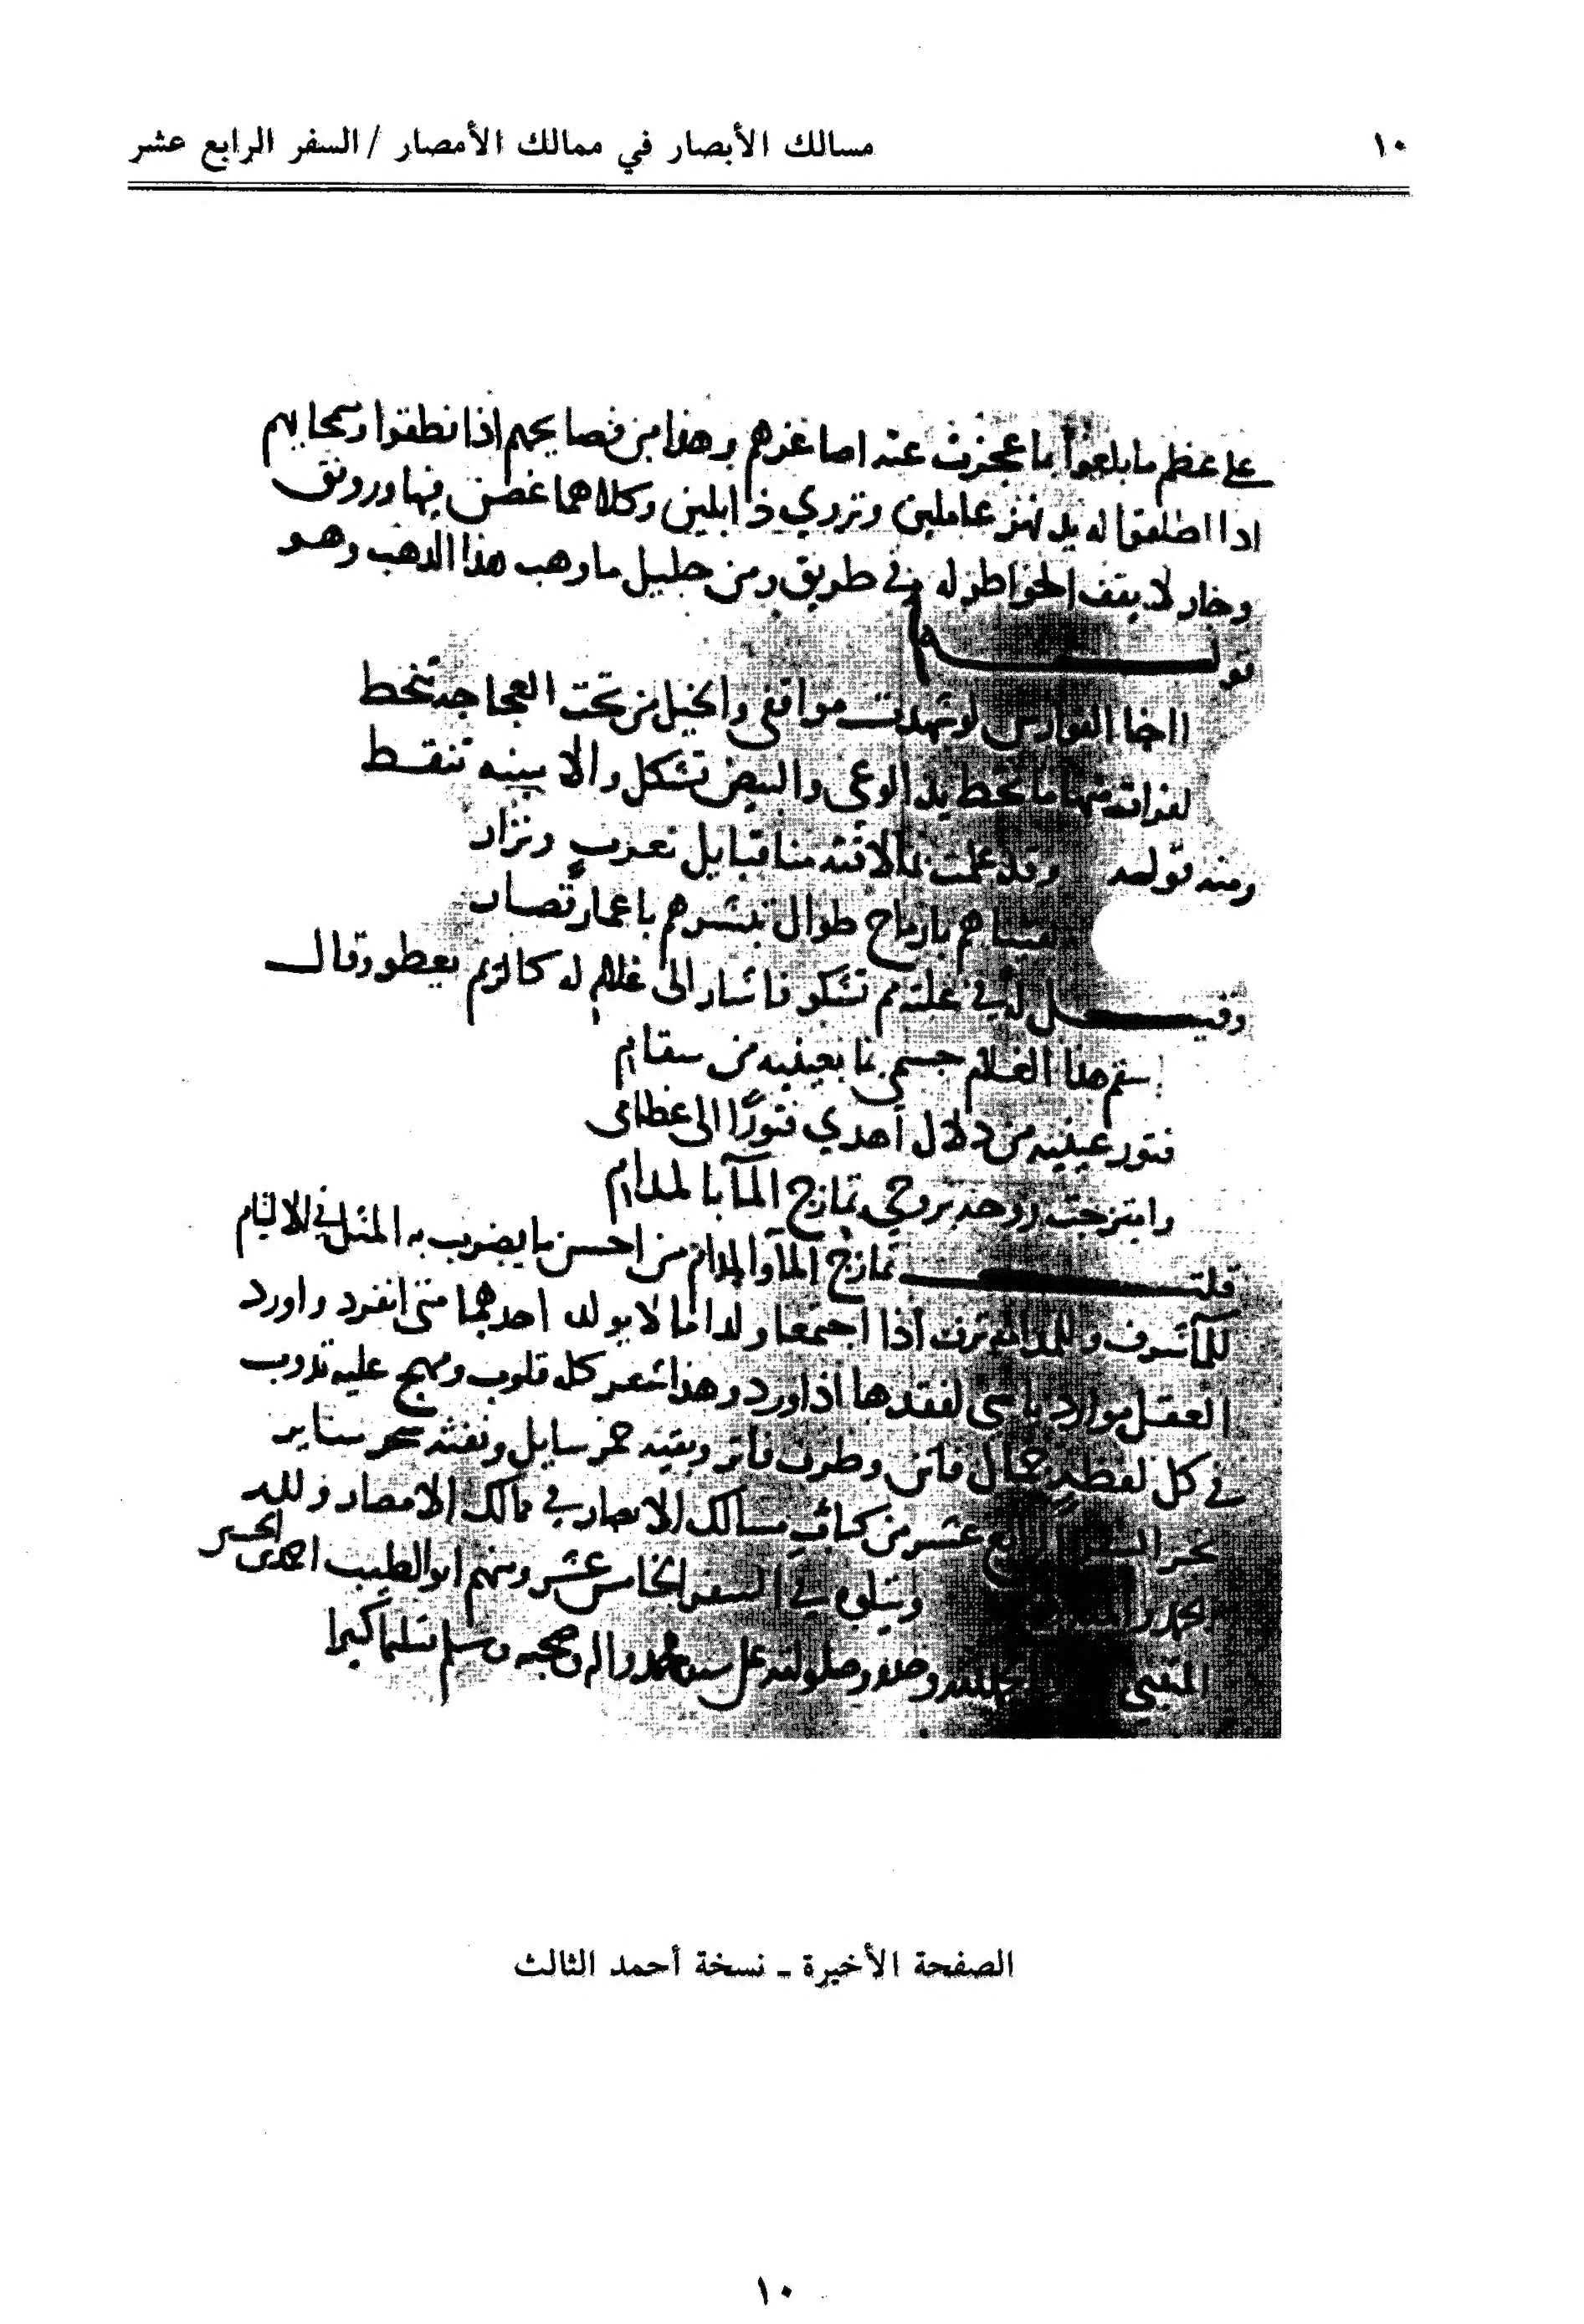 ١٠ مسالك الأبصار في ممالك الأمصار / السفر الرابع عشر
على عظم ما بلغوا ما عجزت عنه اصاغرهم وهذا من فصايحهم اذا نطقوا وسحايبهم
اذا اطلقوا له يد تهز عاملين وتروي ذابلين وكلاهما غصن فيها ورونق
وخار لا يقف الخواطر له في طريق ومن جليل ما وهب هذا الذهب وهو
قولــه
ااخا الفوارس لو شهدت مواقفي والخيل من تحت العجاجة تنحط
لقرات منها ما تخط يد الوغى والبيض تشكل والاسنه تنقط
ومنه قوله وقد علمت بما لاقته منا قبايل يعرب ونزار
لقيناهم بارماح طوال تبشرهم باعمار قصار
وقيــل له في علته مم تشكو فاشار الى غلام له كالريم يعطو وقال
سقم هذا الغلام جسمي بما بعينيه من سقام
فتور عينيه من دلال أهدي فتورًا الى عظامي
وامتزجت روحه بروحي تمازج المآ بالمدام
قلتــ تمازج المآ والمدام من احسن ما يضرب به المثل في الالتيام
للمآ شوف وللمدام ترف اذا اجتمعا ولدا ما لا يولد احدهما متى انفرد واورد
العقل موارد ياسى لفقدها اذا ورد وهذا شعر كله قلوب ومهج عليه تذوب
في كل لفظةٍ جمال فاتن وطرف فاتر وبقيه خمر سايل ونفثه سحر ساير
نجز السفر الرابع عشر من كتاب مسالك الابصار في ممالك الامصار ولله
الحمد ويتلوه في السفر الخامس عشر ومنهم ابو الطيب احمد بن الحسين
المتنبي والحمد لله وحده وصلواته على سيدنا محمد واله وصحبه وسلم تسليما كثيرا
الصفحة الأخيرة - نسخة أحمد الثالث
١٠